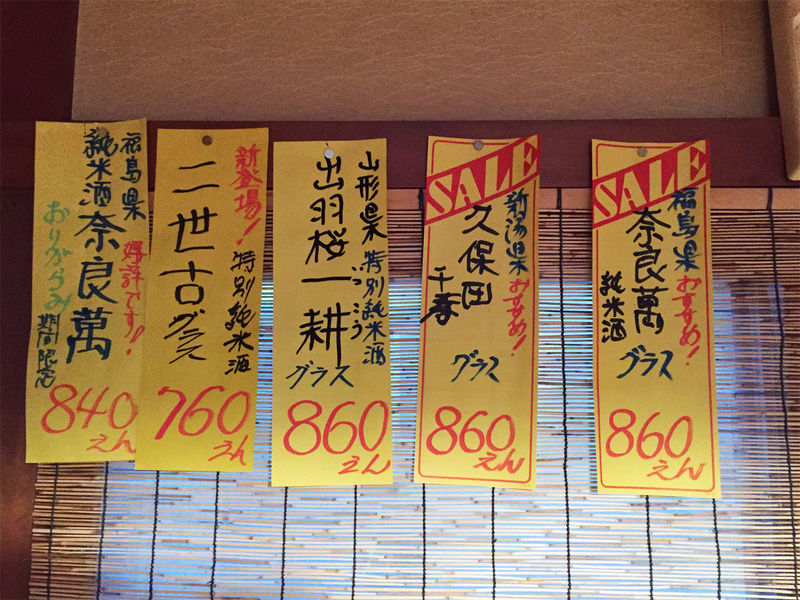 福島県
純米酒
奈良萬
好評です!!
おりがらみ
期間限定
840
えん
新登場!
特別純米酒
二世古
グラス
760
えん
山形県
特別純米酒
出羽桜一耕
いっこう
グラス
860
えん
SALE
新潟県
おすすめ!
久保田
千寿
グラス
860
えん
SALE
福島県
おすすめ!
奈良萬
純米酒
グラス
860
えん